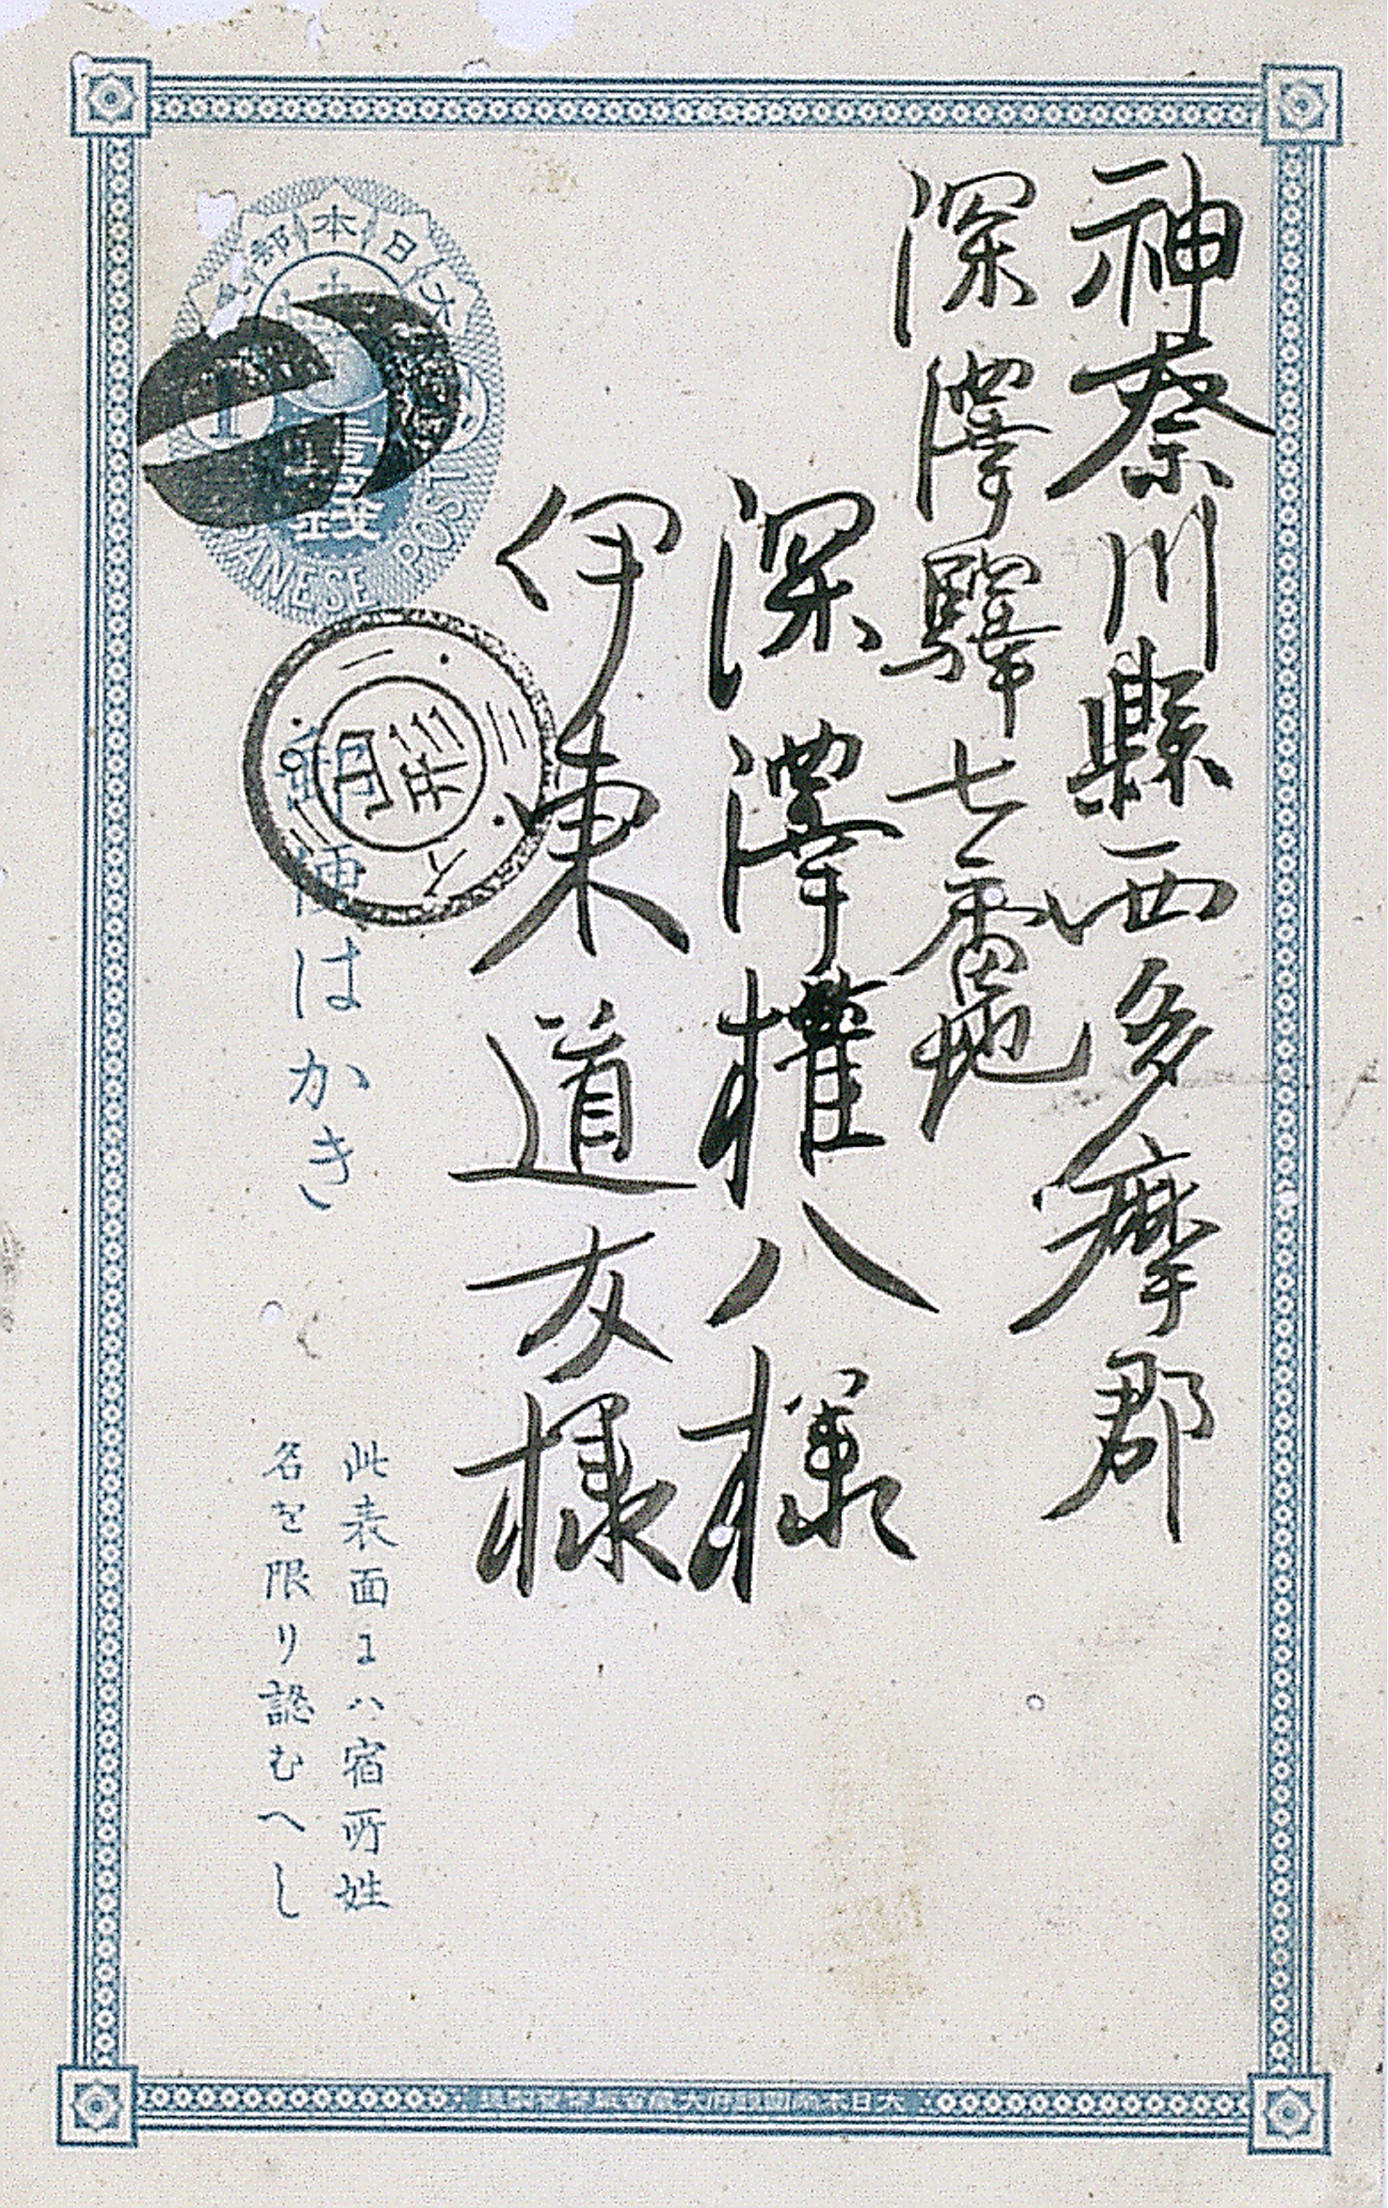 神奈川縣西多摩郡
深澤驛七番地
深澤權八様
伊東道友様
大日本
壹錢
JAPANESE POST
郵便はかき
此表面ニハ宿所姓
名を限り認むへし
大日本帝國政府大蔵省紙幣局製造